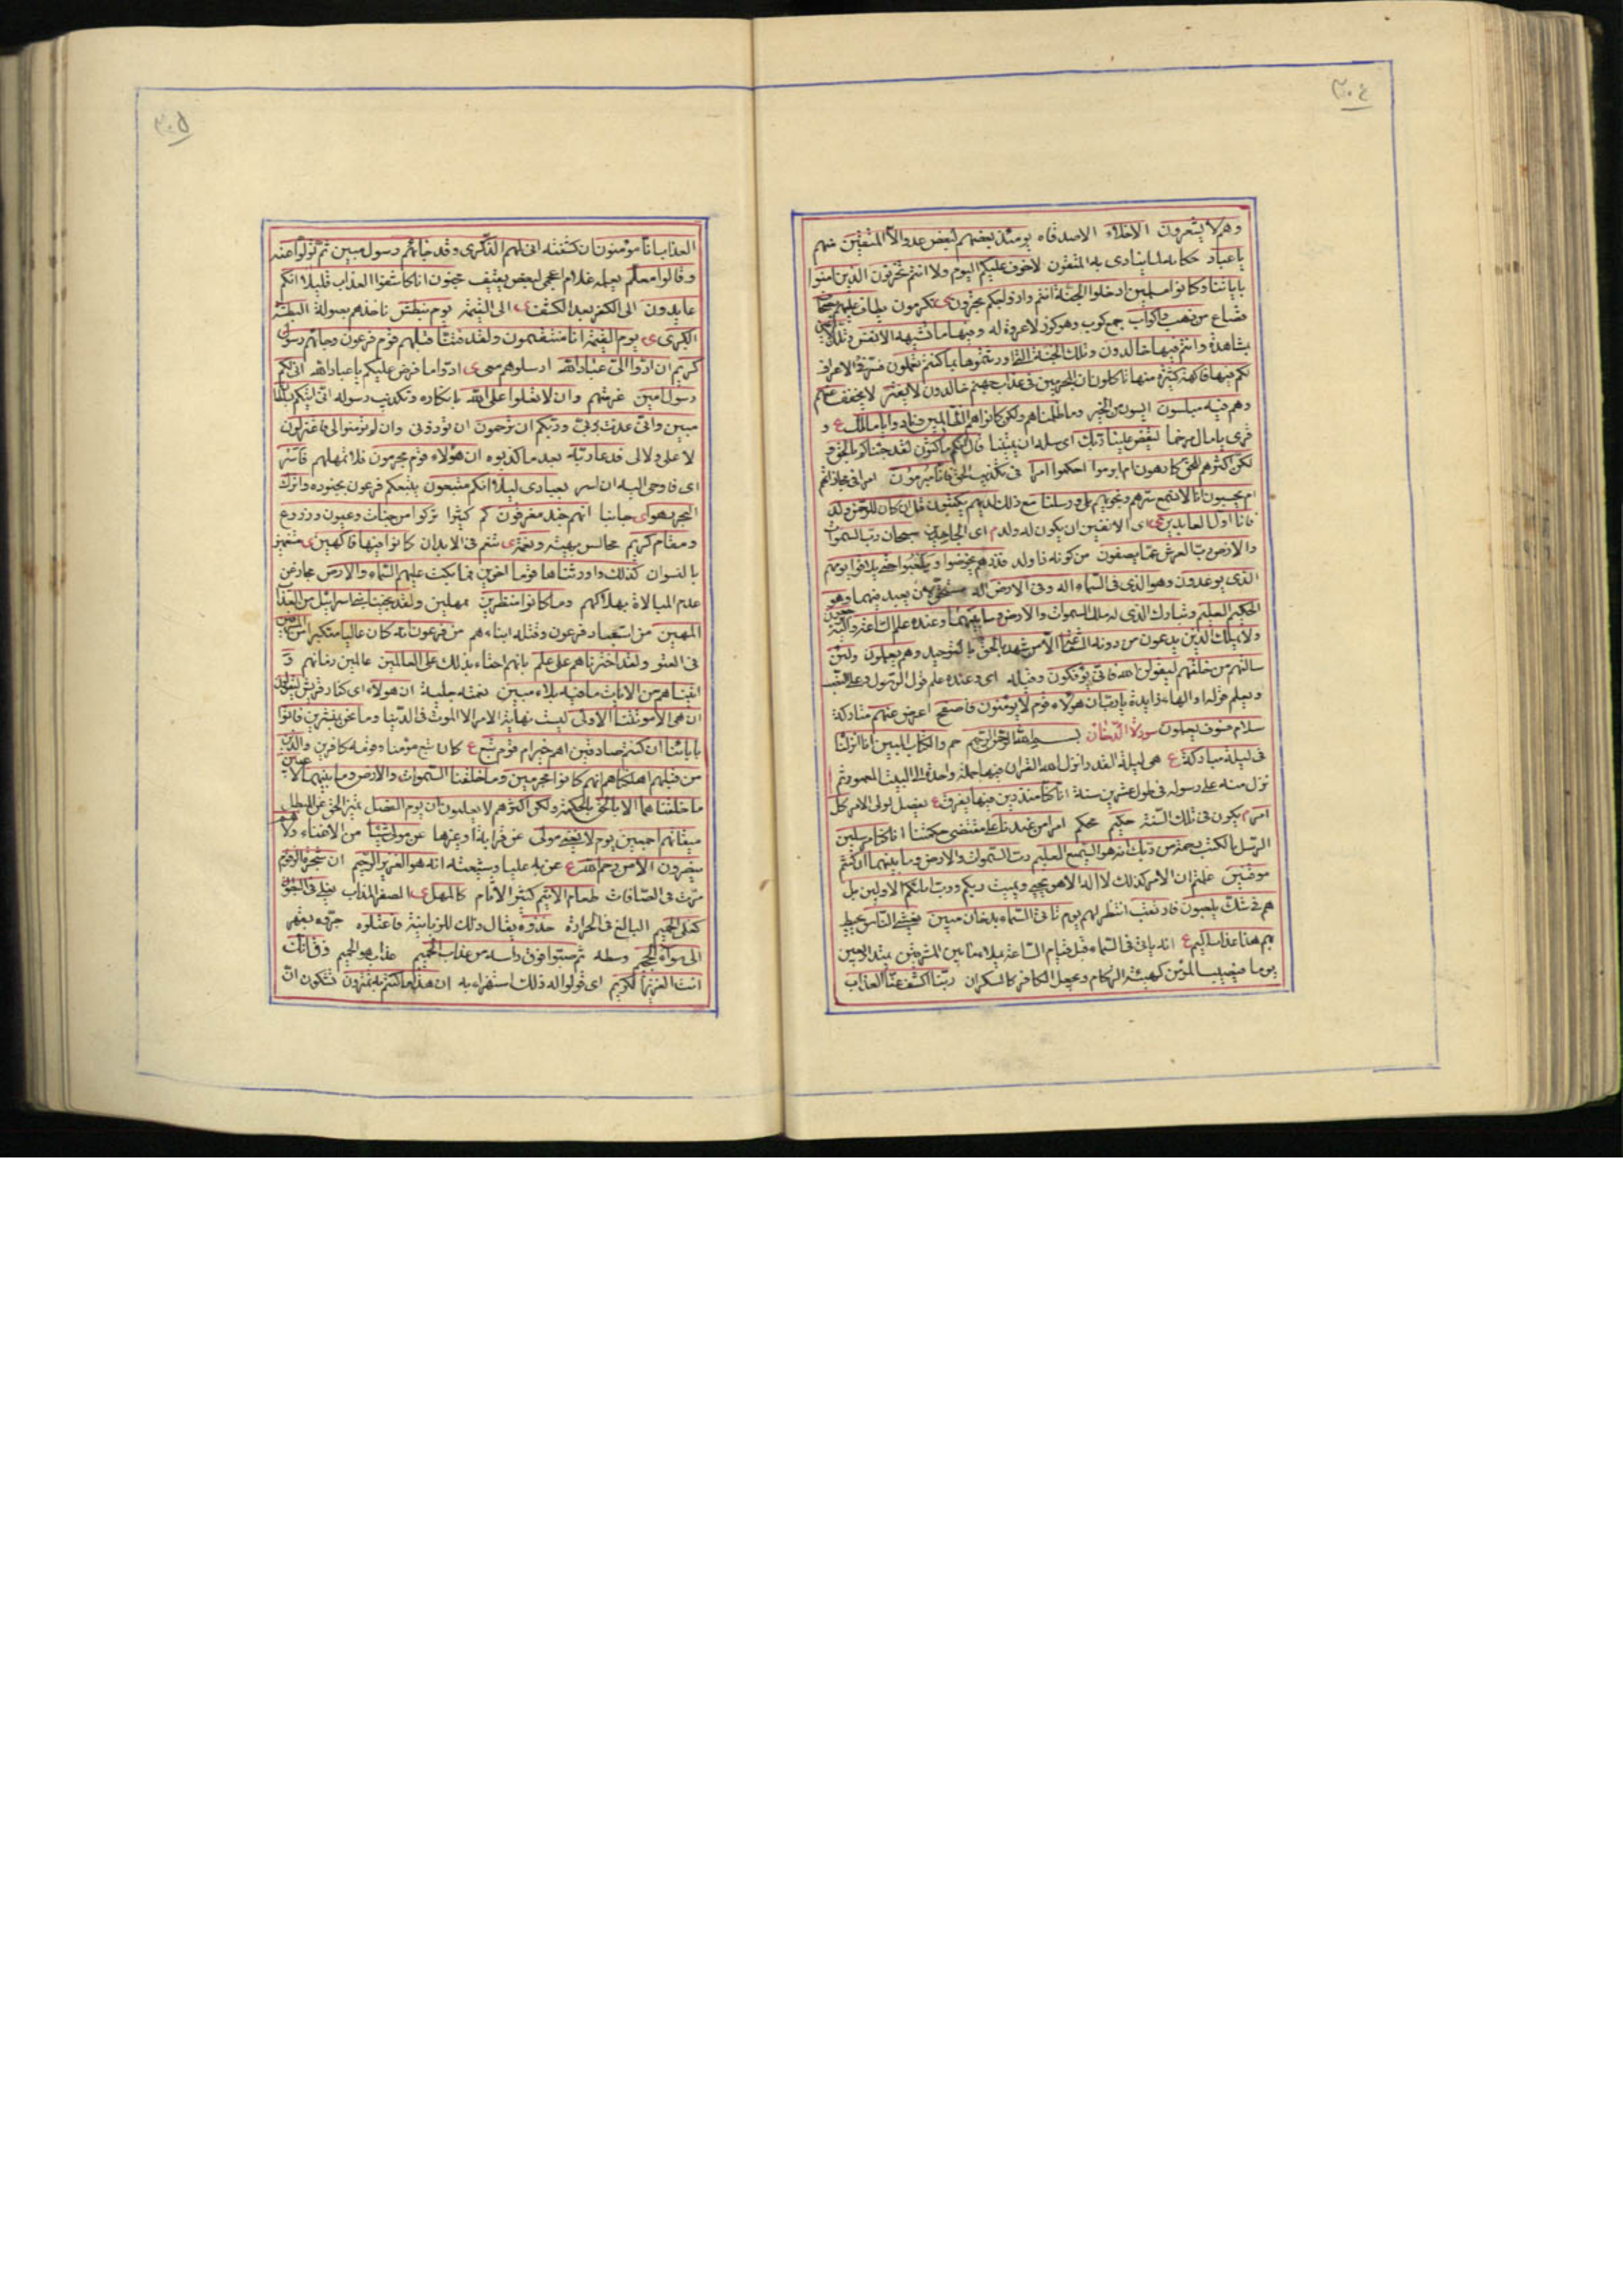 ٣٠٤
وهم لا يشعرون الاخلاء الاصدقاء يومئذ بعضهم لبعض عدو الا المتقين منهم
يا عباد حكاية لما ينادى به المتقون لا خوف عليكم اليوم ولا انتم تحزنون الذين امنوا
باياتنا وكانوا مسلمين ادخلوا الجنة انتم وازواجكم تحبرون ى تكرمون يطاف عليهم بصحاف
قصاع من ذهب واكواب جمع كوب وهو كوز لا عروة له وفيها ما تشتهيه الانفس وتلذ الاعين
بمشاهدة وانتم فيها خالدون وتلك الجنة التى اورثتموها بما كنتم تعملون
لكم فيها فاكهة كثيرة منها تاكلون ان المجرمين فى عذاب جهنم خالدون لا يفتر لا يخفف عنهم
وهم فيه مبلسون ايسون من الخير وما ظلمناهم ولكن كانوا هم الظالمين ونادوا يا مالك ع و
قرى يا مال مرخما ليقض علينا ربك اى سله ان يميتنا قال انكم ماكثون لقد جئناكم بالحق و
لكن اكثركم للحق كارهون ام ابرموا احكموا امرا فى تكذيب الحق فانا مبرمون امرا فى مجازاتهم
ام يحسبون انا لا نسمع سرهم ونجويهم بلى ورسلنا مع ذلك لديهم يكتبون قل ان كان للرحمن ولد
فانا اول العابدين ع اى الانفين ان يكون له ولد م اى الجاحدين سبحان رب السموات
والارض رب العرش عما يصفون من كونه ذا ولد فذرهم يخوضوا ويلعبوا حتى يلاقوا يومهم
الذى يوعدون وهو الذى فى السماء اله وفى الارض اله مستحق لان يعبد فيهما وهو
الحكيم العليم وتبارك الذى له ملك السموات والارض وما بينهما وعنده علم الساعة واليه ترجعون
ولا يملك الذين يدعون من دونه الشفاعة الا من شهد بالحق بالتوحيد وهم يعلمون ولئن
سالتهم من خلقهم ليقولن الله فانى يؤفكون وقيله اى وعنده علم قول الرسول وعلى النصب
ويعلم قوله والهاء زايدة يا رب ان هؤلاء قوم لا يؤمنون فاصفح اعرض عنهم متاركة
سلام فسوف يعلمون سورة الدخان بسم الله الرحمن الرحيم حم والكتاب المبين انا انزلناه
فى ليلة مباركة ع هى ليلة القدر انزل الله القران فيها جملة واحدة الى البيت المعمور ثم
نزل منه على رسوله فى طول عشرين سنة انا كنا منذرين فيها يفرق ع يفصل لولى الامر كل
امر م يكون فى تلك السنة حكيم محكم امرا من عندنا على مقتضى حكمتنا انا كنا مرسلين
الرسل بالكتب رحمة من ربك انه هو السميع العليم رب السموات والارض وما بينهما ان كنتم
موقنين علمتم ان الامر كذلك لا اله الا هو يحيى ويميت ربكم ورب ابائكم الاولين بل
هم فى شك يلعبون فارتقب انتظر لهم يوم تاتى السماء بدخان مبين يغشى الناس يحيط
بهم هذا عذاب اليم ع انه ياتى فى السماء قبل قيام الساعة يملاء ما بين المشرقين يبتدا اربعين
يوما فيصيب المؤمن كهيئة الزكام ويجعل الكافر كالسكران ربنا اكشف عنا العذاب
٣٠٥
العذاب انا مؤمنون ان كشفته انى لهم الذكرى وقد جائهم رسول مبين ثم تولوا عنه
وقالوا معلم يعلمه غلام اعجمى لبعض ثقيف مجنون انا كاشفوا العذاب قليلا انكم
عايدون الى الكفر بعد الكشف ع الى القيمة يوم نبطش ناخذهم بصولة البطشة
الكبرى ى يوم القيمة انا منتقمون ولقد فتنا قبلهم قوم فرعون وجائهم رسول
كريم ان ادوا الى عباد الله ارسلوهم معى ى ادوا ما فرض عليكم يا عباد الله انى لكم
رسول امين غير متهم وان لا تعلوا على الله بانكاره وتكذيب رسوله انى اتيكم بسلطان
مبين وانى عذت بربى وربكم ان ترجمون ان تؤذونى وان لم تؤمنوا لى فاعتزلون
لا على ولا لى فدعا ربه بعد ما كذبوه ان هؤلاء قوم مجرمون فلا تمهلهم فاسر
اى فاوحى اليه ان اسر بعبادى ليلا انكم متبعون يتبعكم فرعون بجنوده واترك
البحر رهوا ى جانبا انهم جند مغرقون كم كثيرا تركوا من جنات وعيون وزروع
ومقام كريم مجالس بهية ونعمة ى تنعم فى الابدان كانوا فيها فاكهين ى متمتعين
بالنسوان كذلك واورثناها قوما اخرين فما بكت عليهم السماء والارض مجاز عن
عدم المبالاة بهلاكهم وما كانوا منظرين ممهلين ولقد نجينا بنى اسرائيل من العذاب
المهين من استعباد فرعون وقتله ابناءهم من فرعون انه كان عاليا متكبرا من المسرفين
فى العتو ولقد اخترناهم على علم بانهم احقاء بذلك على العالمين عالمين زمانهم و
اتيناهم من الايات ما فيه بلاء مبين نعمة جلية ان هؤلاء اى كفار قريش ليقولون
ان هى الا موتتنا الاولى ليست نهاية الامر الا الموت فى الدنيا وما نحن بمنشرين فاتوا
بابائنا ان كنتم صادقين اهم خير ام قوم تبع ع كان تبع مؤمنا وقومه كافرين والذين
من قبلهم اهلكناهم انهم كانوا مجرمين وما خلقنا السموات والارض وما بينهما لاعبين
ما خلقناهما الا بالحق بالحكمة ولكن اكثرهم لا يعلمون ان يوم الفصل تميز الحق عن المبطل
ميقاتهم اجمعين يوم لا يغنى مولى عن قرابة او غيرها عن مولى شيئا من الاغناء ولا هم
ينصرون الا من رحم الله ع عن به عليا وشيعته انه هو العزيز الرحيم ان شجرة الزقوم
مرت فى الصافات طعام الاثيم كثير الاثام كالمهل ع الصفر المذاب يغلى فى البطون
كغلى الحميم البالغ فى الحرارة خذوه يقال ذلك للزبانية فاعتلوه جروه بقهر
الى سواء الجحيم وسطه ثم صبوا فوق راسه من عذاب الحميم عذاب هو الحميم ذق انك
انت العزيز الكريم اى قولوا له ذلك استهزاء به ان هذا ما كنتم به تمترون تشكون ان